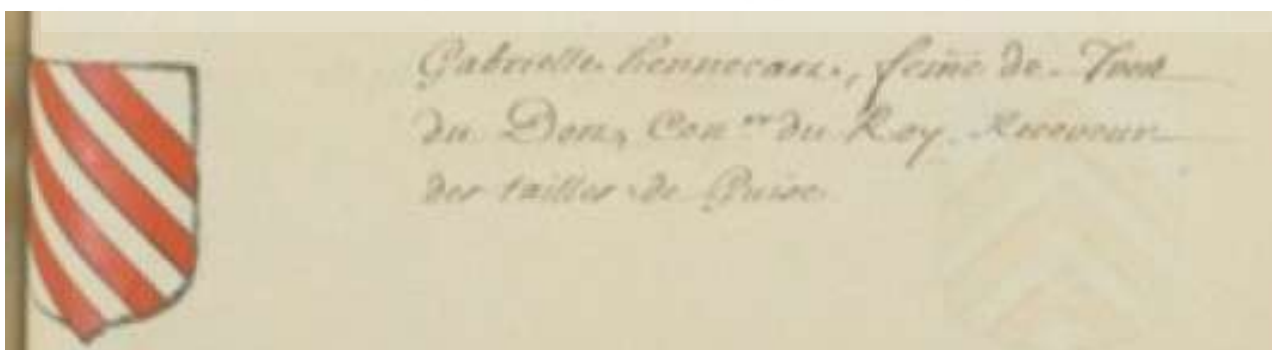 Gabrielle hennecart, fem̃e de Yvon
du Don, Con.er du Roy Receveur
des tailles de Guise